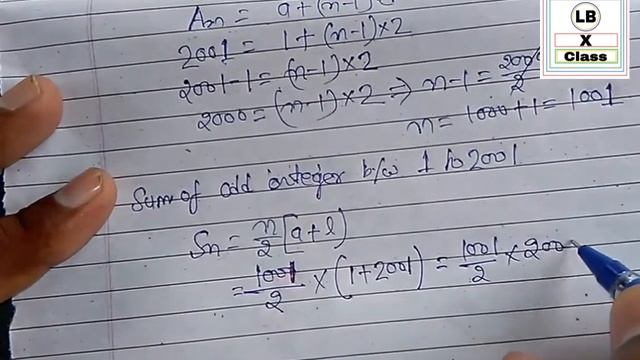 LB
X
Class
An = a+(n-1)
2001 = 1+(n-1)×2
2001-1=(n-1)×2
2000=(n-1)×2 ⇒ n-1=2000/2
n=1000+1=1001
Sum of odd integer b/w 1 to 2001.
Sn = n/2 [a+l]
= 1001/2 × (1+2001) = 1001/2 × 200